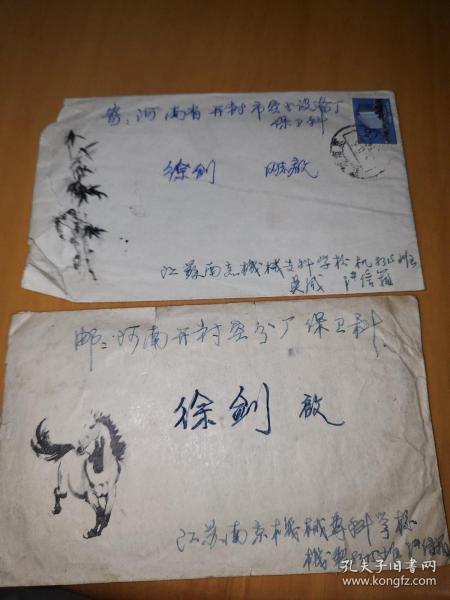 寄：河南省开封市空分设备厂
保卫科
徐剑 同志 啟
江苏南京機械专科学校机
班
邮：河南开封空分厂保卫科
徐剑 啟
江苏南京機械專科学校
孔夫子旧书网
www.kongfz.com